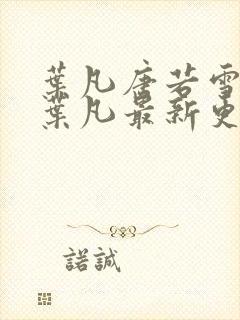 葉凡唐若雪
葉凡最新更
諾誠